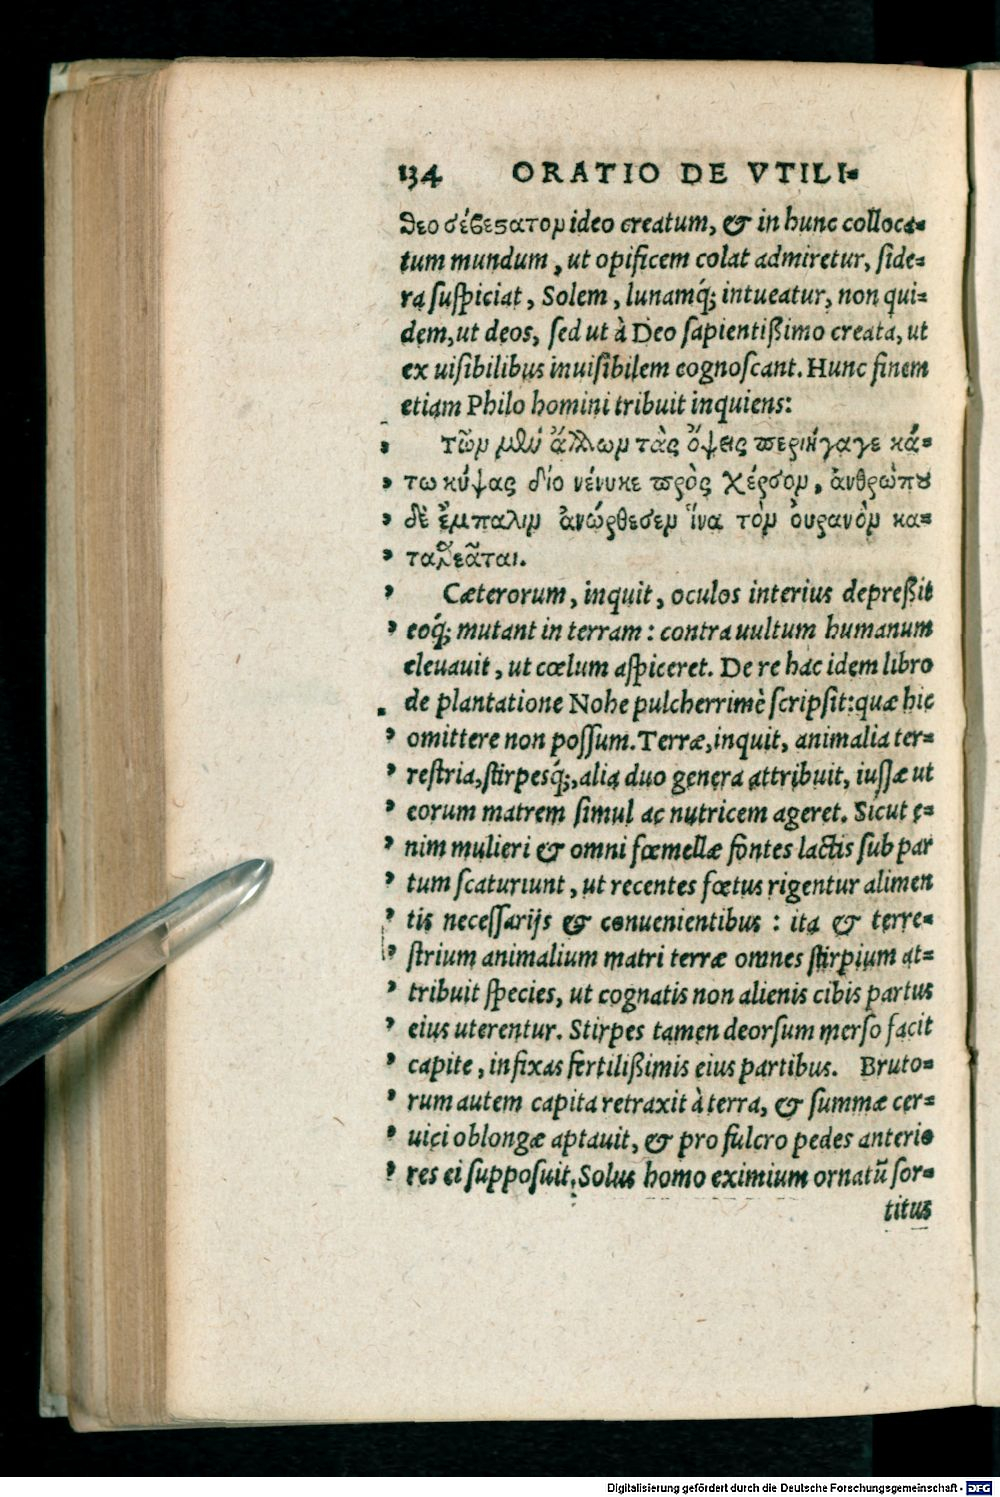 134 ORATIO DE VTILI-
θεοσέβεστατον ideo creatum, & in hunc colloca-
tum mundum, ut opificem colat admiretur, ſide-
ra ſuſpiciat, Solem, lunamq́; intueatur, non qui-
dem, ut deos, ſed ut à Deo ſapientißimo creata, ut
ex uiſibilibus inuiſibilem cognoſcant. Hunc finem
etiam Philo homini tribuit inquiens:
Τῶν μὲν ἄλλων τὰς ὄψεις περιήγαγε κά-
τω κύψας διὸ νένυκε πρὸς χέρσον, ἀνθρώπου
δὲ ἔμπαλιν ἀνώρθεσεν ἵνα τὸν ὀυρανὸν κα-
ταθεᾶται.
Cæterorum, inquit, oculos interius depreßit
eoq́; mutant in terram: contra uultum humanum
eleuauit, ut cœlum aſpiceret. De re hac idem libro
de plantatione Nohe pulcherrimè ſcripſit: quæ hic
omittere non poſſum. Terræ, inquit, animalia ter-
reſtria, ſtirpesq́;, alia duo genera attribuit, iuſſæ ut
eorum matrem ſimul ac nutricem ageret. Sicut e-
nim mulieri & omni fœmellæ fontes lactis ſub par
tum ſcaturiunt, ut recentes fœtus rigentur alimen
tis neceſſarijs & conuenientibus: ita & terre-
ſtrium animalium matri terræ omnes ſtirpium at-
tribuit ſpecies, ut cognatis non alienis cibis partus
eius uterentur. Stirpes tamen deorſum merſo facit
capite, infixas fertilißimis eius partibus. Bruto-
rum autem capita retraxit à terra, & ſummæ cer-
uici oblongæ aptauit, & pro fulcro pedes anterio
res ei ſuppoſuit. Solus homo eximium ornatũ ſor-
titus
Digitalisierung gefördert durch die Deutsche Forschungsgemeinschaft - DFG